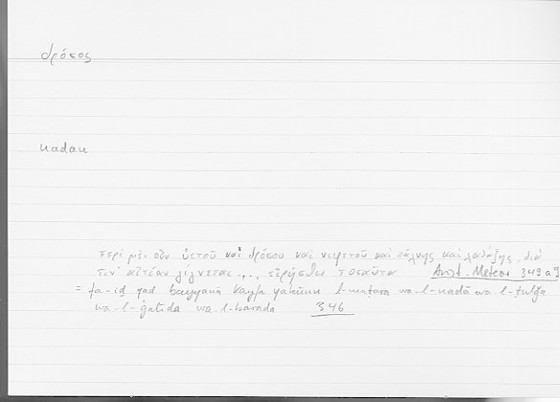 δρόσος
nadan
περὶ μὲν οὖν ὑετοῦ καὶ δρόσου καὶ νιφετοῦ καὶ πάχνης καὶ χαλάζης, διὰ
τίν' αἰτίαν γίγνεται ..., εἰρήσθω τοσαῦτα Arist. Meteor 349 a 9
= fa-iḏ qad bayyannā kayfa yakūnu l-maṭara wa-l-nadā wa-l-ṯulǧa
wa-l-ǧalīda wa-l-barada 346